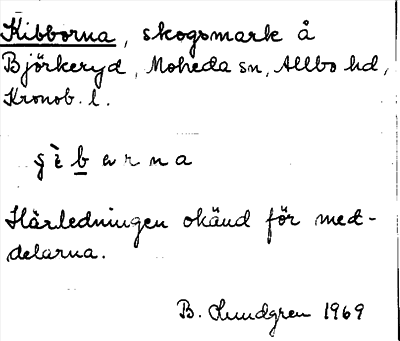 Kibborna, skogsmark å
Björkeryd, Moheda sn, Allbo hd,
Kronob. l.
Härledningen okänd för med-
delarna.
B. Lundgren 1969